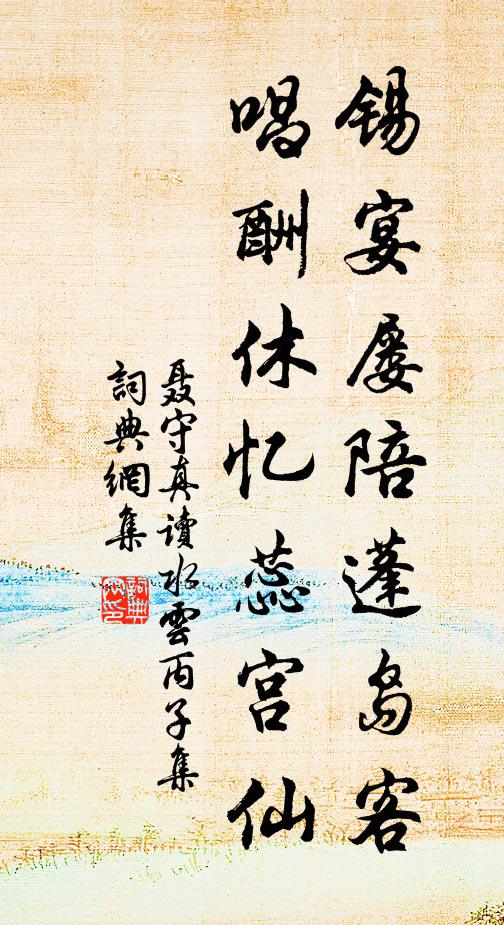 锡宴屡陪蓬岛客
唱酬休忆蕊宫仙
聂守真读水云丙子集
詞典網集